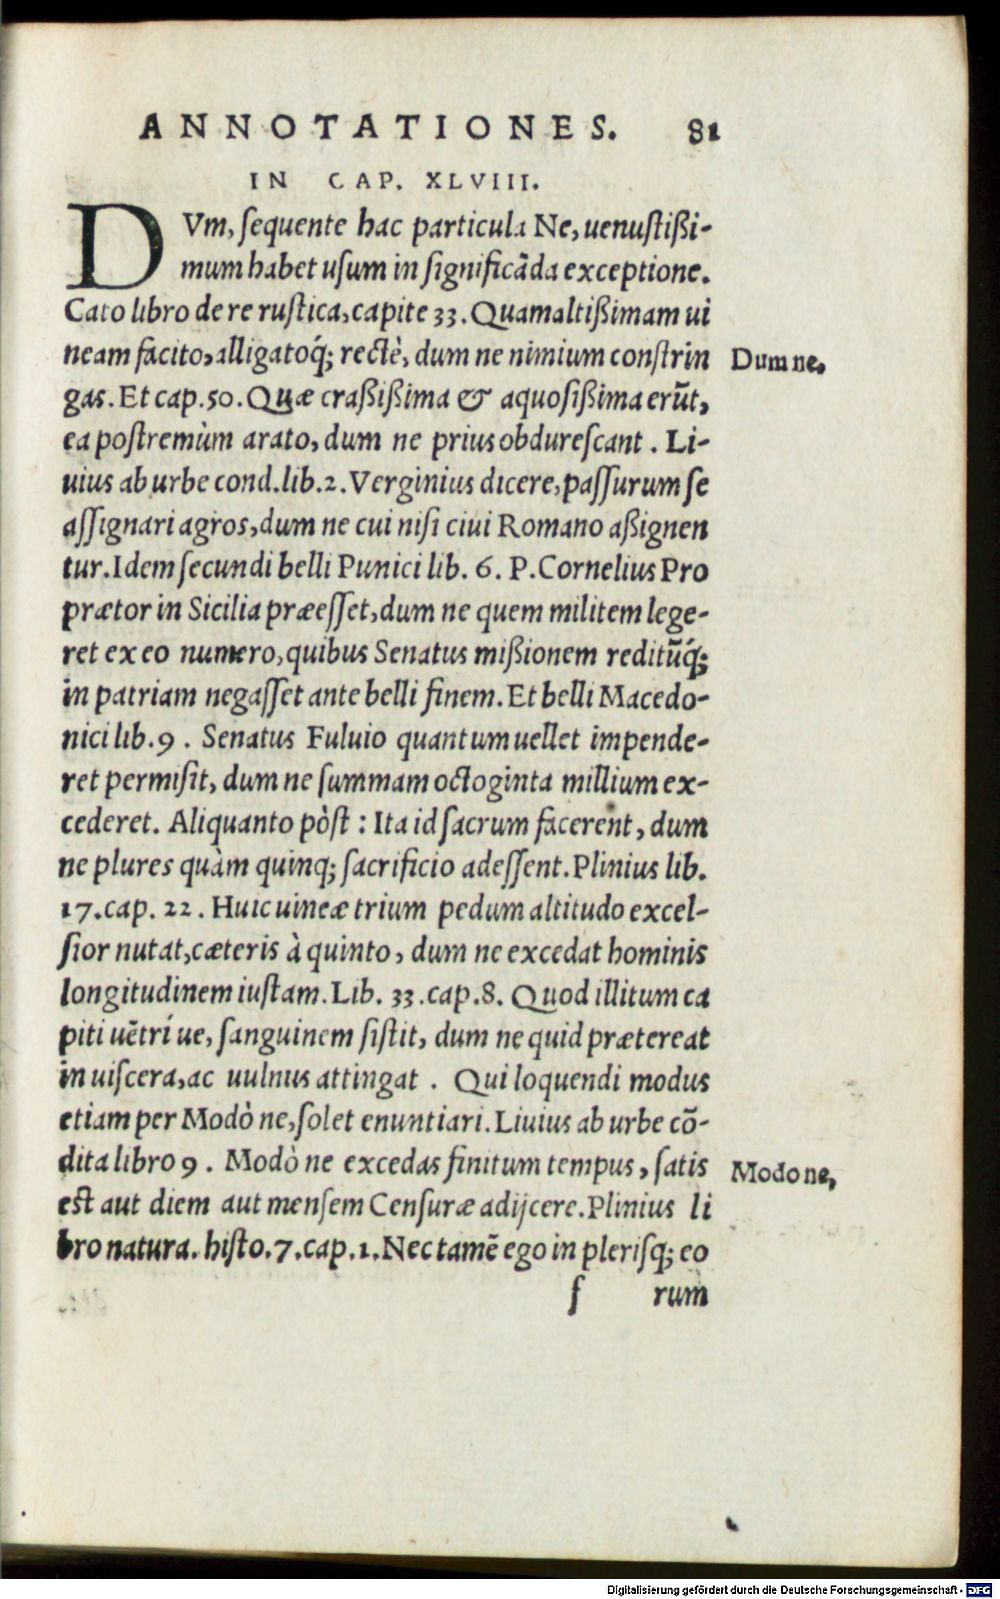 ANNOTATIONES. 81
IN CAP. XLVIII.
DVm, ſequente hac particula Ne, uenuſtißi-
mum habet uſum in ſignificãda exceptione.
Cato libro de re ruſtica, capite 33. Quam altißimam ui
neam facito, alligatoq́; rectè, dum ne nimium conſtrin
gas. Et cap. 50. Quæ craßißima & aquoſißima erũt,
ea poſtremùm arato, dum ne prius obdureſcant. Li-
uius ab urbe cond. lib. 2. Verginius dicere, paſſurum ſe
aſſignari agros, dum ne cui niſi ciui Romano aßignen
tur. Idem ſecundi belli Punici lib. 6. P. Cornelius Pro
prætor in Sicilia præeſſet, dum ne quem militem lege-
ret ex eo numero, quibus Senatus mißionem reditũq́;
in patriam negaſſet ante belli finem. Et belli Macedo-
nici lib. 9. Senatus Fuluio quantum uellet impende-
ret permiſit, dum ne ſummam octoginta millium ex-
cederet. Aliquanto pòſt: Ita id ſacrum facerent, dum
ne plures quàm quinq; ſacrificio adeſſent. Plinius lib.
17. cap. 22. Huic uineæ trium pedum altitudo excel-
ſior nutat, cæteris à quinto, dum ne excedat hominis
longitudinem iuſtam. Lib. 33. cap. 8. Quod illitum ca
piti uẽtri ue, ſanguinem ſiſtit, dum ne quid prætereat
in uiſcera, ac uulnus attingat. Qui loquendi modus
etiam per Modò ne, ſolet enuntiari. Liuius ab urbe cõ-
dita libro 9. Modò ne excedas finitum tempus, ſatis
eſt aut diem aut menſem Cenſuræ adijcere. Plinius li
bro natura. hiſto. 7. cap. 1. Nec tamẽ ego in pleriſq; eo
ſ rum
Dum ne.
Modo ne,
Digitalisierung gefördert durch die Deutsche Forschungsgemeinschaft - DFG